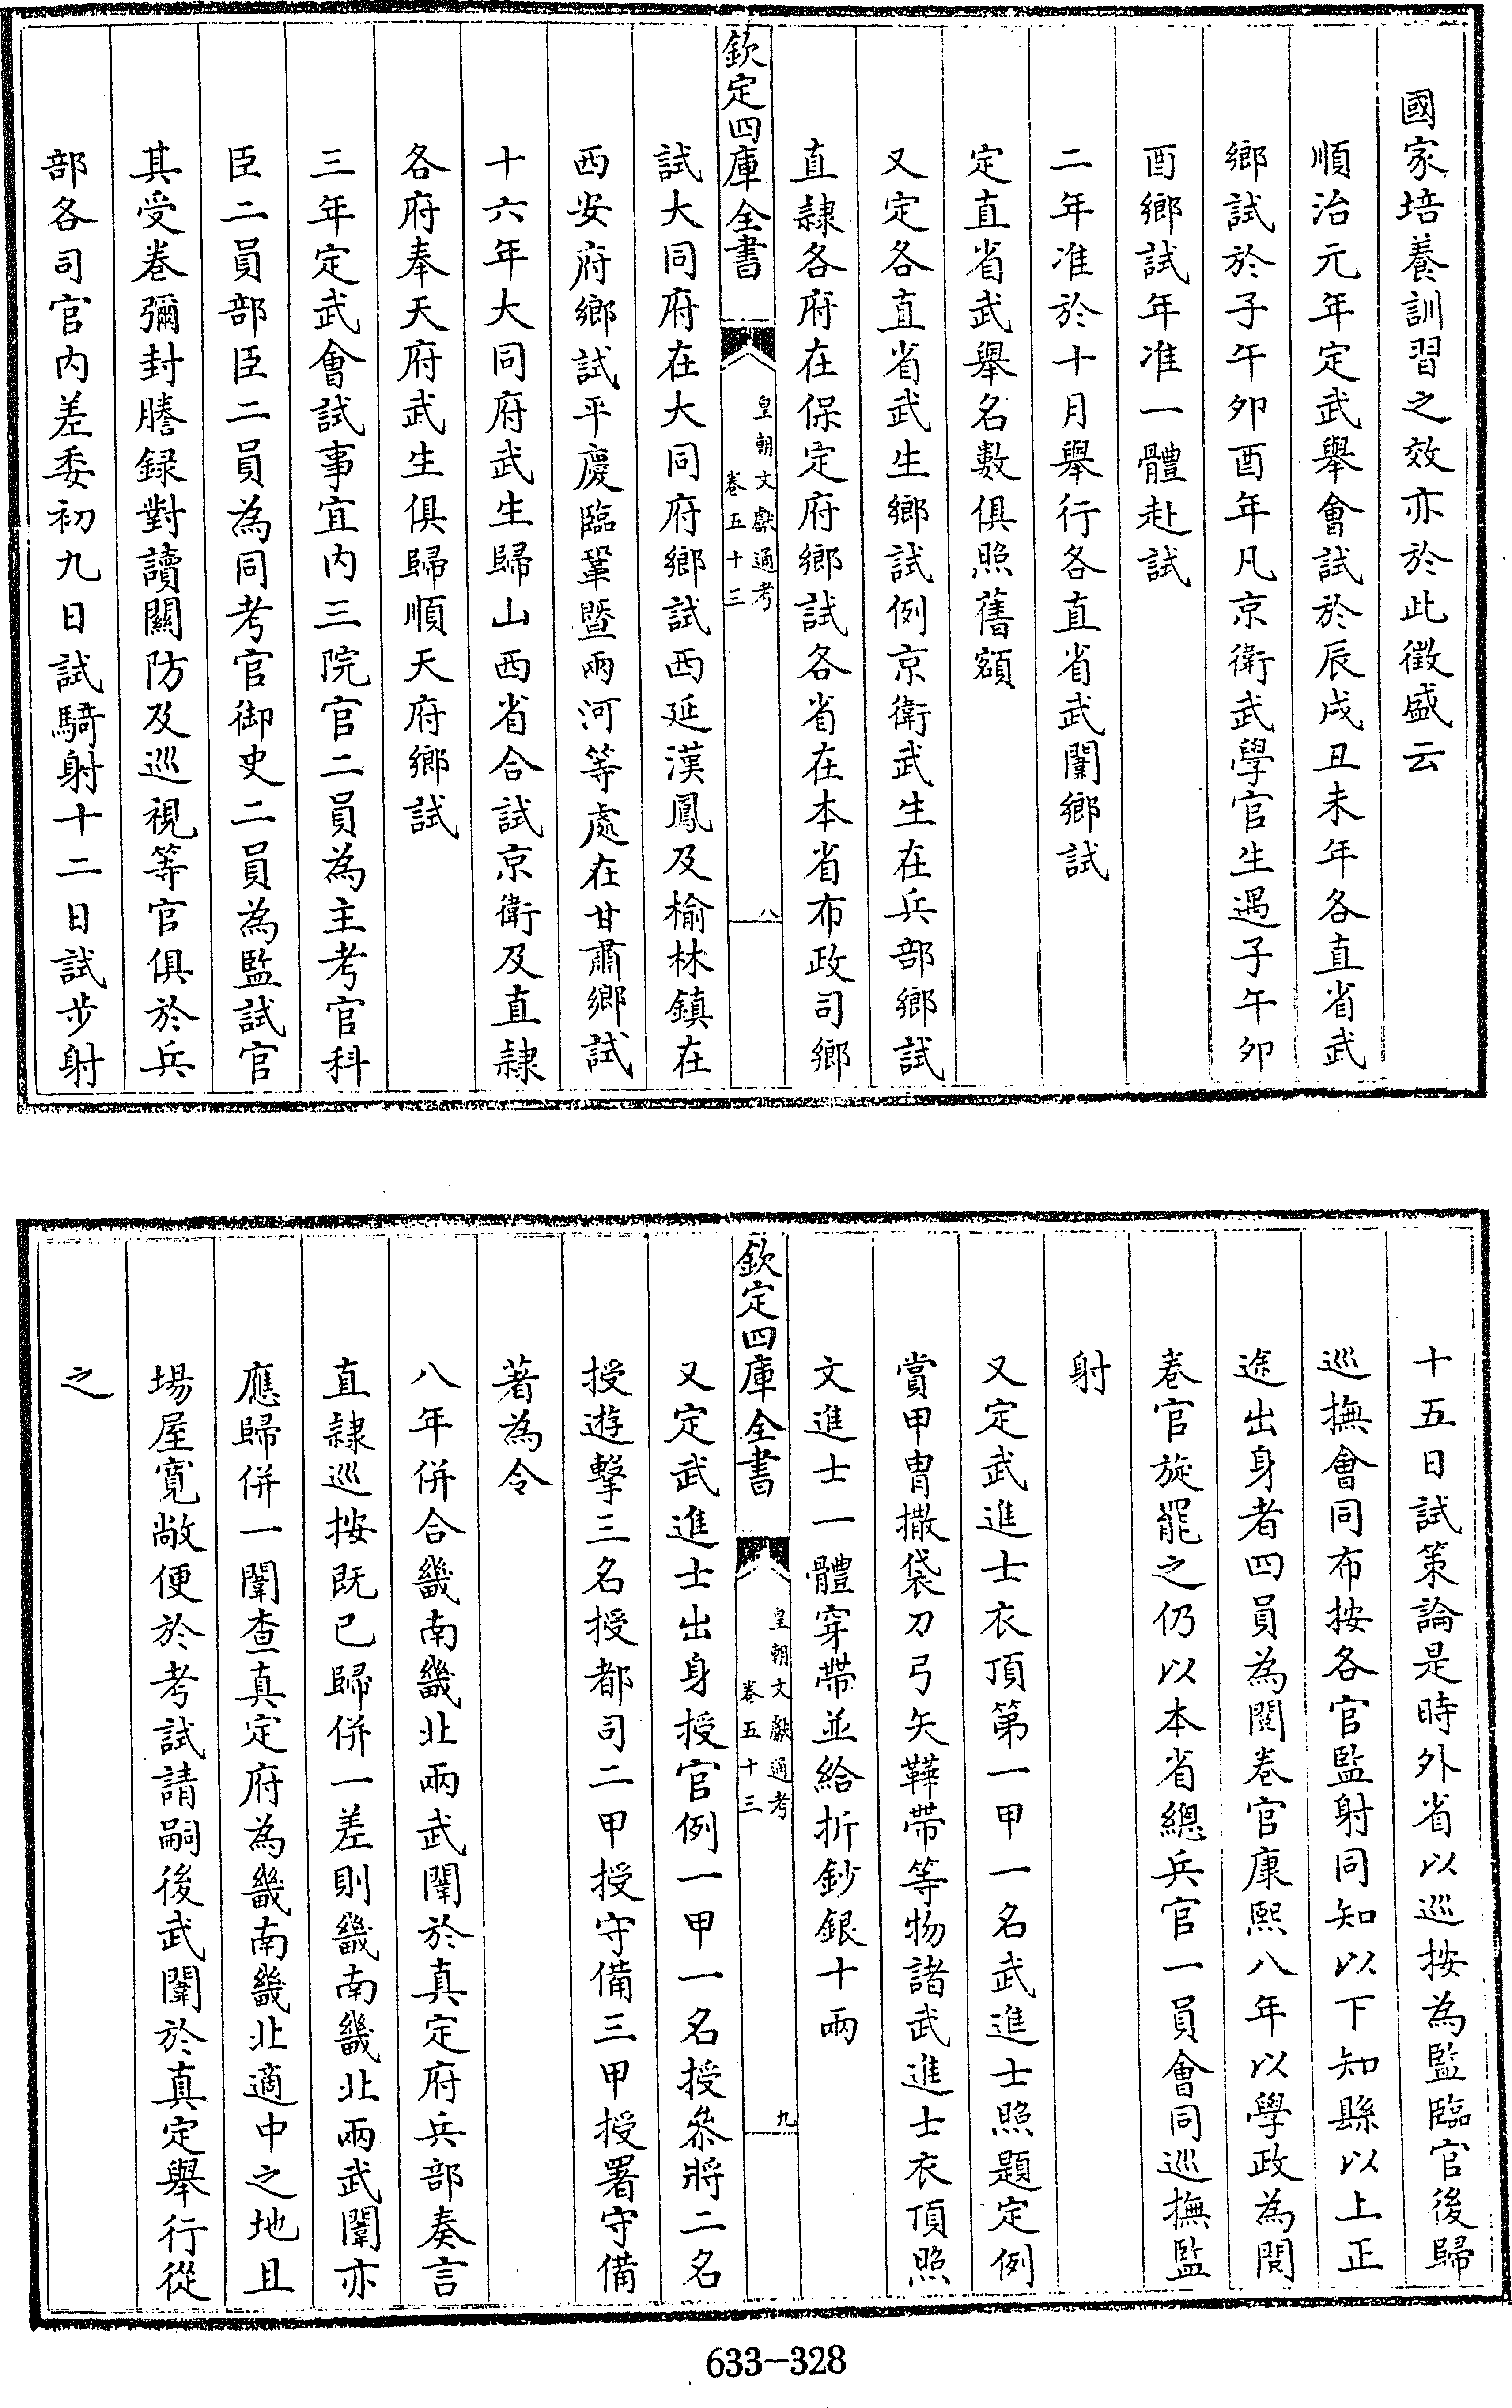 國家培養訓習之效亦於此徵盛云
順治元年定武舉會試於辰戌丑未年各直省武
鄉試於子午夘酉年凡京衛武學官生遇子午夘
酉鄉試年准一體赴試
二年准於十月舉行各直省武闈鄉試
定直省武舉名數俱照舊額
又定各直省武生鄉試例京衛武生在兵部鄉試
直隸各府在保定府鄉試各省在本省布政司鄉
欽定四庫全書
皇朝文獻通考
卷五十三
八
試大同府在大同府鄉試西延漢鳳及榆林鎮在
西安府鄉試平慶臨鞏暨兩河等處在甘肅鄉試
十六年大同府武生歸山西省合試京衛及直隸
各府奉天府武生俱歸順天府鄉試
三年定武會試事宜内三院官二員為主考官科
臣二員部臣二員為同考官御史二員為監試官
其受卷彌封謄録對讀關防及巡視等官俱於兵
部各司官内差委初九日試騎射十二日試步射
十五日試策論是時外省以巡按為監臨官後歸
巡撫會同布按各官監射同知以下知縣以上正
途出身者四員為閲卷官康熙八年以學政為閲
卷官旋罷之仍以本省總兵官一員會同巡撫監
射
又定武進士衣頂第一甲一名武進士照題定例
賞甲胄撒袋刀弓矢鞾帶等物諸武進士衣頂照
文進士一體穿帶並給折鈔銀十兩
欽定四庫全書
皇朝文獻通考
卷五十三
九
又定武進士出身授官例一甲一名授叅將二名
授遊擊三名授都司二甲授守備三甲授署守備
著為令
八年併合畿南畿北兩武闈於真定府兵部奏言
直隸巡按既已歸併一差則畿南畿北兩武闈亦
應歸併一闈查真定府為畿南畿北適中之地且
場屋寛敞便於考試請嗣後武闈於真定舉行從
之
633-328